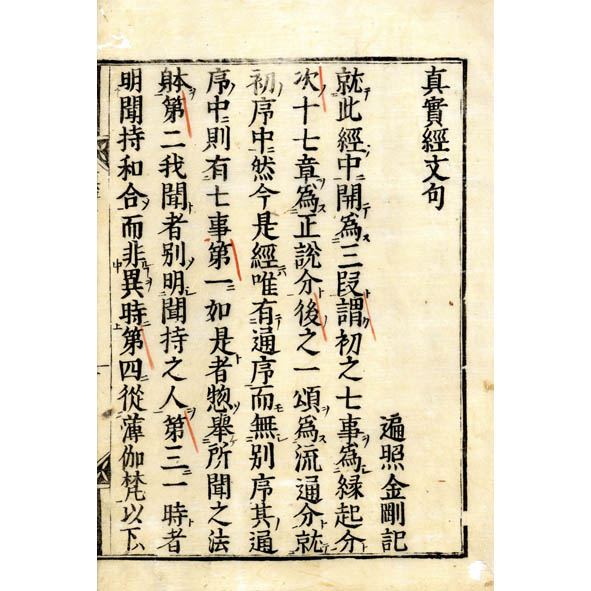 真實經文句
遍照金剛記
就此經中開為三段謂初之七事為縁起分
次十七章為正說分後之一頌為流通分就
初序中然今是經唯有通序而無別序其通
序中則有七事第一如是者惣舉所聞之法
躰第二我聞者別明聞持之人第三一時者
明聞持和合而非異時第四從薄伽梵以下